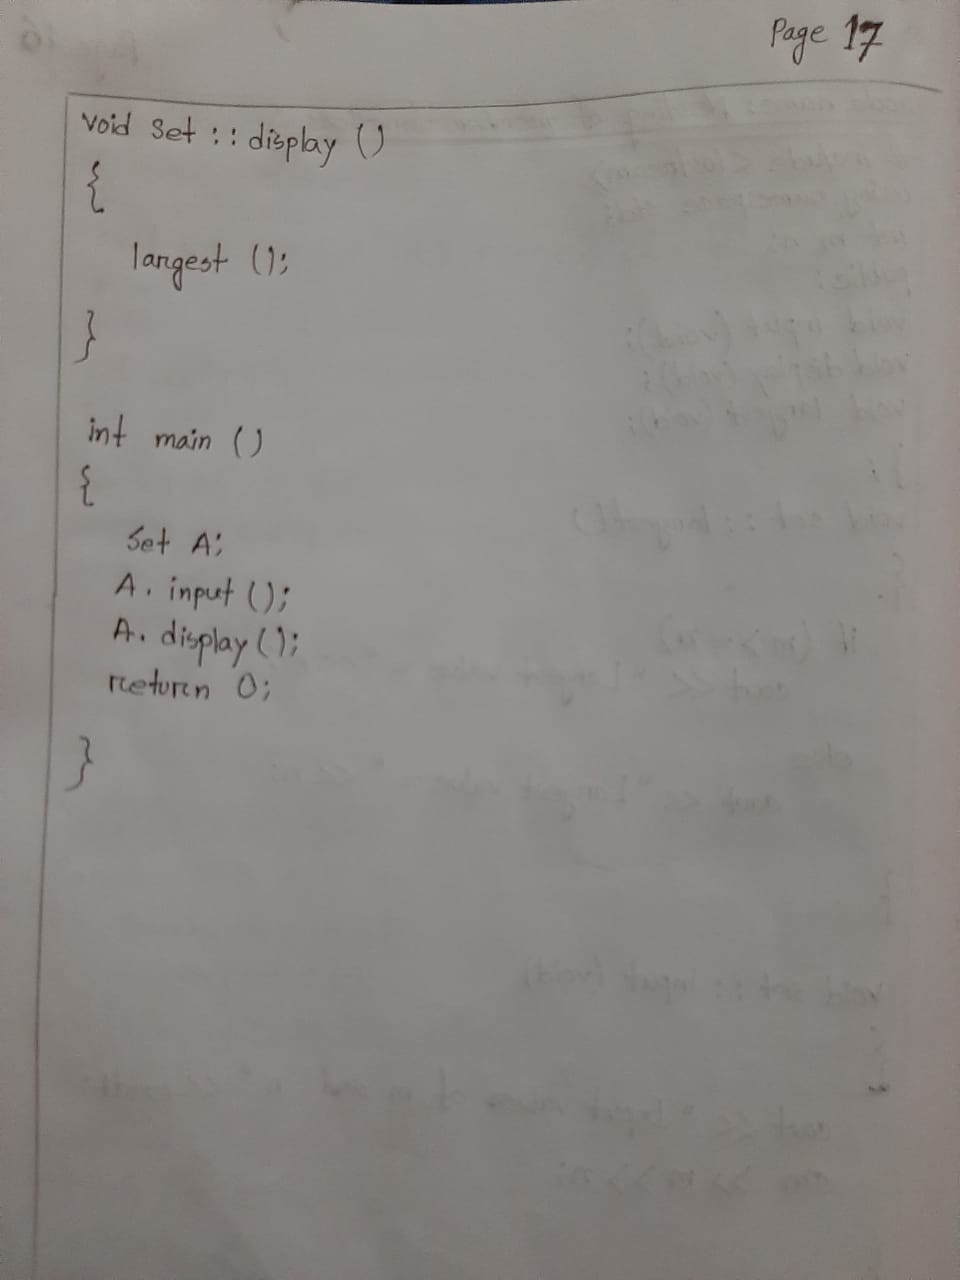 Page 17
void set :: display ()
{
largest ();
}
int main ()
{
set A;
A. input ();
A. display ();
return 0;
}